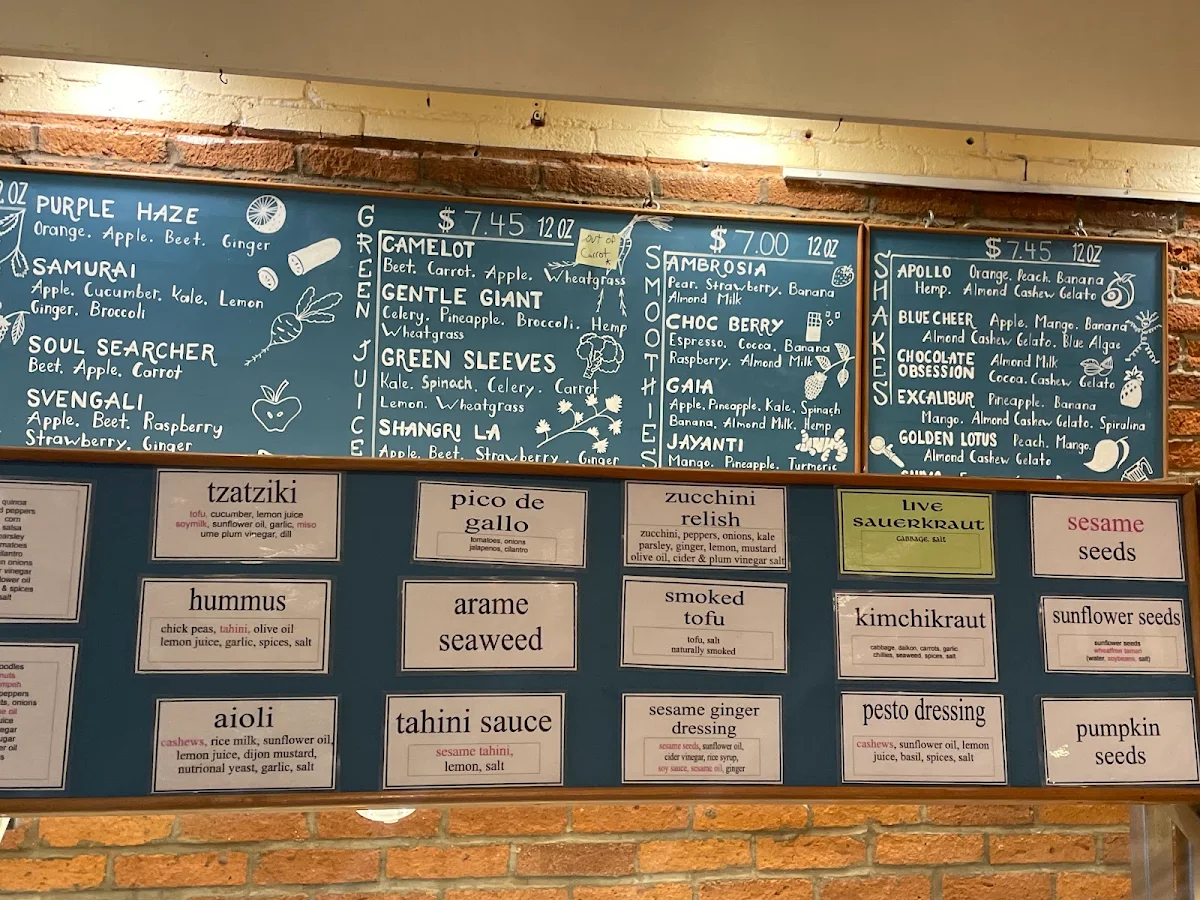 2 OZ
PURPLE HAZE
Orange. Apple. Beet. Ginger
SAMURAI
Apple. Cucumber. Kale. Lemon
Ginger. Broccoli
SOUL SEARCHER
Beet. Apple. Carrot
SVENGALI
Apple. Beet. Raspberry
Strawberry. Ginger
GREEN JUICE
$7.45 12 OZ
out of
Carrot
CAMELOT
Beet. Carrot. Apple. Wheatgrass
GENTLE GIANT
Celery. Pineapple. Broccoli. Hemp
Wheatgrass
GREEN SLEEVES
Kale. Spinach. Celery. Carrot
Lemon. Wheatgrass
SHANGRI LA
Apple. Beet. Strawberry. Ginger
SMOOTHIES
$7.00 12 OZ
AMBROSIA
Pear. Strawberry. Banana
Almond Milk
CHOC BERRY
Espresso. Cocoa. Banana
Raspberry. Almond Milk
GAIA
Apple. Pineapple. Kale. Spinach
Banana. Almond Milk. Hemp
JAYANTI
Mango. Pineapple. Turmeric
SHAKES
$7.45 12 OZ
APOLLO Orange. Peach. Banana
Hemp. Almond Cashew Gelato
BLUE CHEER Apple. Mango. Banana
Almond Cashew Gelato. Blue Algae
CHOCOLATE OBSESSION Almond Milk
Cocoa. Cashew Gelato
EXCALIBUR Pineapple. Banana
Mango. Almond Cashew Gelato. Spirulina
GOLDEN LOTUS Peach. Mango.
Almond Cashew Gelato
quinoa
peppers
corn
salsa
& spices
salt
tzatziki
tofu, cucumber, lemon juice
soymilk, sunflower oil, garlic, miso
ume plum vinegar, dill
pico de
gallo
tomatoes, onions
jalapenos, cilantro
zucchini
relish
zucchini, peppers, onions, kale
parsley, ginger, lemon, mustard
olive oil, cider & plum vinegar salt
LIVE
SAUERKRAUT
cabbage, salt
sesame
seeds
hummus
chick peas, tahini, olive oil
lemon juice, garlic, spices, salt
arame
seaweed
smoked
tofu
tofu, salt
naturally smoked
kimchikraut
cabbage, daikon, carrots, garlic
chillies, seaweed, spices, salt
sunflower seeds
sunflower seeds
wheatfree tamari
(water, soybeans, salt)
peppers
onions
aioli
cashews, rice milk, sunflower oil,
lemon juice, dijon mustard,
nutrional yeast, garlic, salt
tahini sauce
sesame tahini,
lemon, salt
sesame ginger
dressing
sesame seeds, sunflower oil,
cider vinegar, rice syrup,
soy sauce, sesame oil, ginger
pesto dressing
cashews, sunflower oil, lemon
juice, basil, spices, salt
pumpkin
seeds